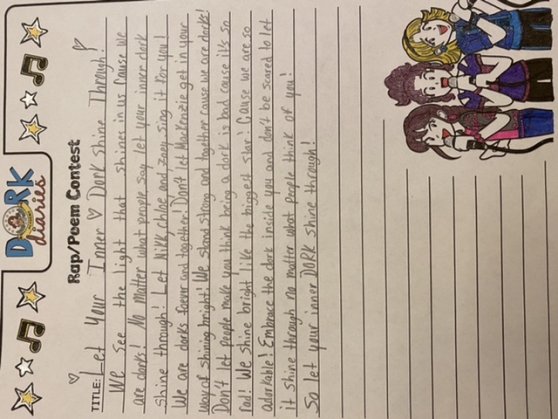 DORK
diaries
Rap/Poem Contest
TITLE: Let Your Inner ♡ Dork Shine Through!
We see the light that shines in us cause we
are dorks! No matter what people say let your inner dork
shine through! Let Nikki, chloe and zoey sing it for you!
We are dorks forever and together! Don't let Mackenzie get in your
way of shining bright! We stand strong and together cause we are dorks!
Don't let people make you think being a dork is bad cause it's so
rad! We shine bright like the biggest star! Cause we are so
adorkable! Embrace the dork inside you and don't be scared to let
it shine through no matter what people think of you!
So let your inner DORK shine through!